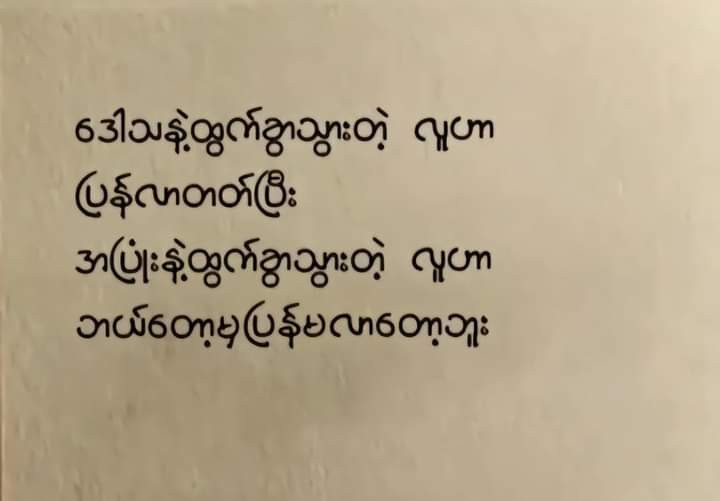 ဒေါသနဲ့ထွက်ခွာသွားတဲ့ လူဟာ
ပြန်လာတတ်ပြီး
အပြုံးနဲ့ထွက်ခွာသွားတဲ့ လူဟာ
ဘယ်တော့မှပြန်မလာတော့ဘူး